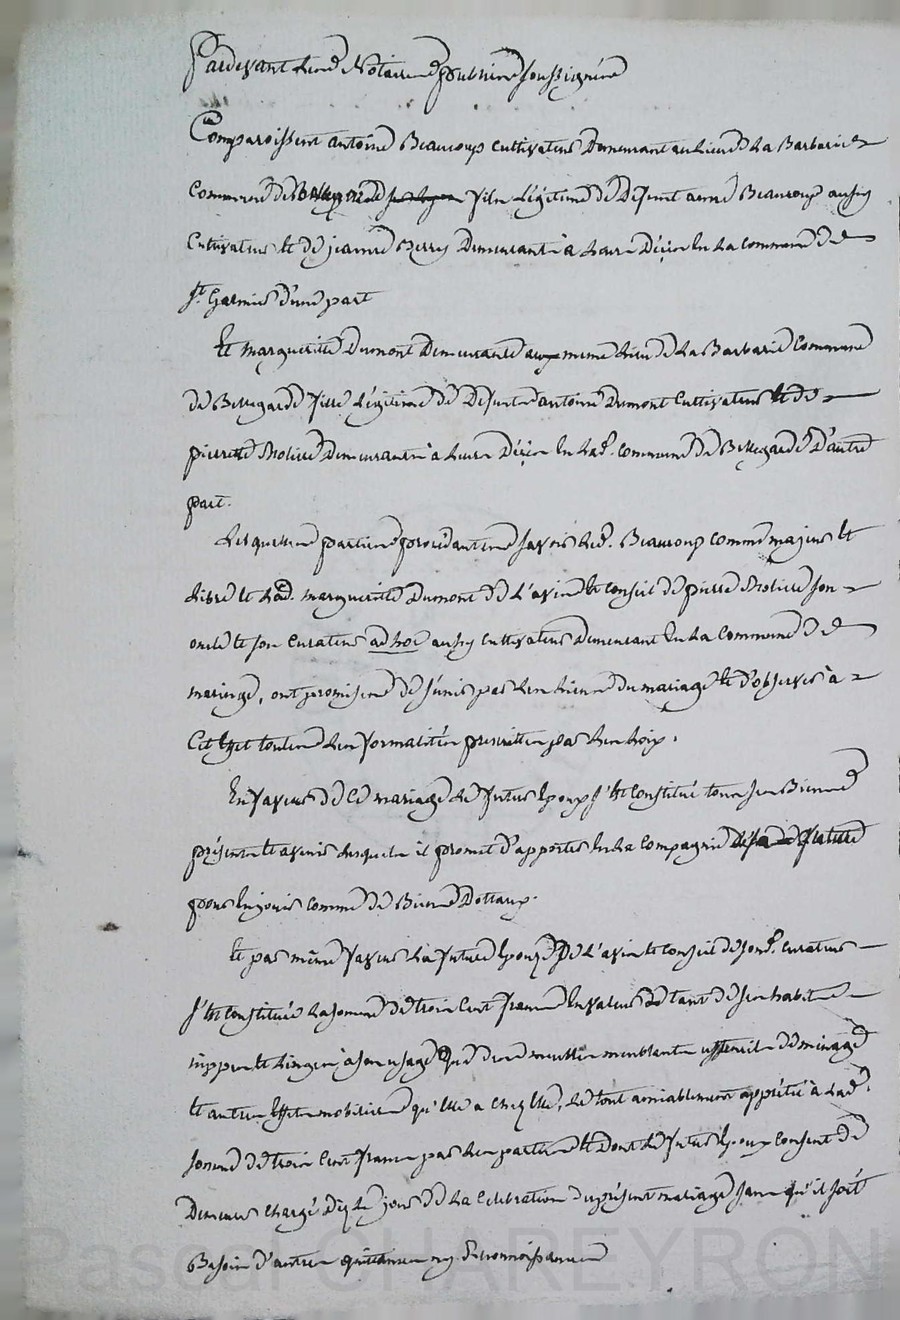 Pardevant Les Notaires publics soussignés
Comparoissent antoine Beaucoup cultivateur Demeurant au lieu de La Barbarie
Commune de Bellegarde fils Légitime de Defunt aimé Beaucoup aussy
Cultivateur et de jeanne Berry Demeurant à Leurs Décès en La commune de
St. Galmier d'une part
Et marguerite Dumont Demeurante au meme lieu de La Barbarie Commune
de Bellegarde fille Légitime de Defunts antoine Dumont Cultivateur et de
pierrette Molière Demeurants à Leurs Décès en Lad. commune de Bellegarde D'autre
part.
Lesquelles parties procédantes savoir Led. Beaucoup comme majeur et
Libre et Lad. marguerite Dumont de L'avis et Conseil de pierre Molière son
oncle et son curateur ad hoc aussy cultivateur Demeurant en La Commune de
maringe, ont promis de s'unir par Les Liens du mariage et d'observer à
Cet Effet toutes Les formalités prescrittes par Les Loix.
En faveur de Ce mariage Le futur Epoux s'est Constitué tous ses Biens
présents et avenir Lesquels il promet d'apporter en La Compagnie de sa future
pour En jouir comme de Biens Dottaux.
Et par même faveur La future Epouse De L'avis et Conseil de sond. curateur
s'est Constituée La somme de trois Cent francs En valeur tant de ses habits
nippes et Linges à son usage que des meubles meublants ustensils de ménage
et autres Effets mobiliers qu'elle a chez Elle, Le tout amiablement apprétié à Lad.
somme de trois Cent francs par Les parties Et Dont Le futur Epoux Consent de
Demeurer chargé Dez Le jour de La Celebration du présent mariage sans qu'il soit
Besoin d'autres quittances ny Reconnoissances
Pascal CHAREYRON